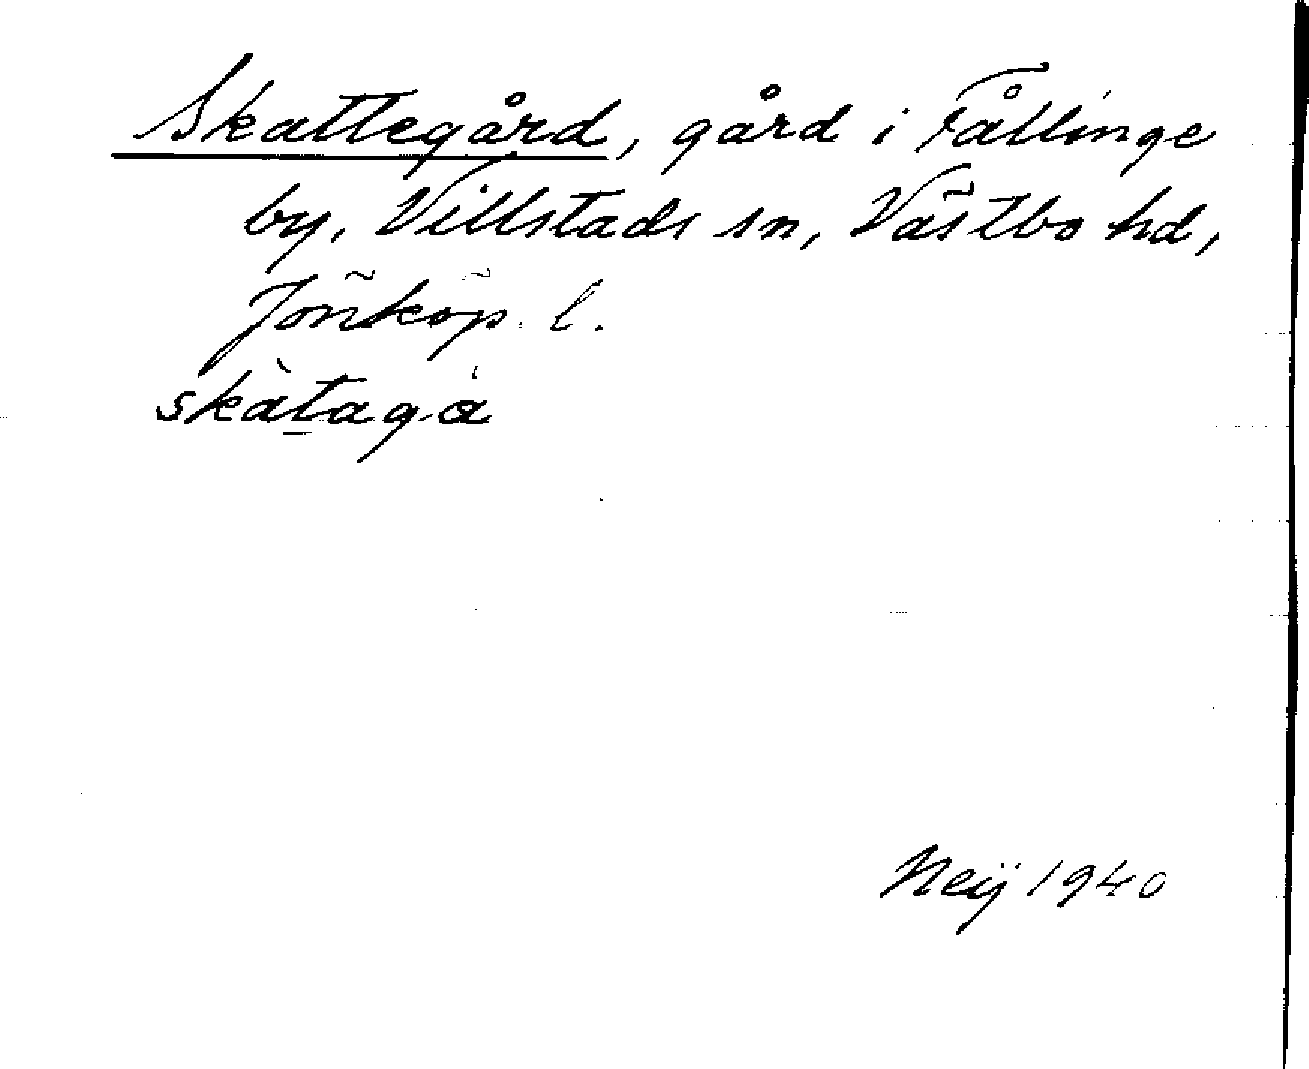 Skattegård, gård i Fållinge
by, Villstads sn, Västbo hd,
Jönköp. l.
skàtagá
Neij 1940